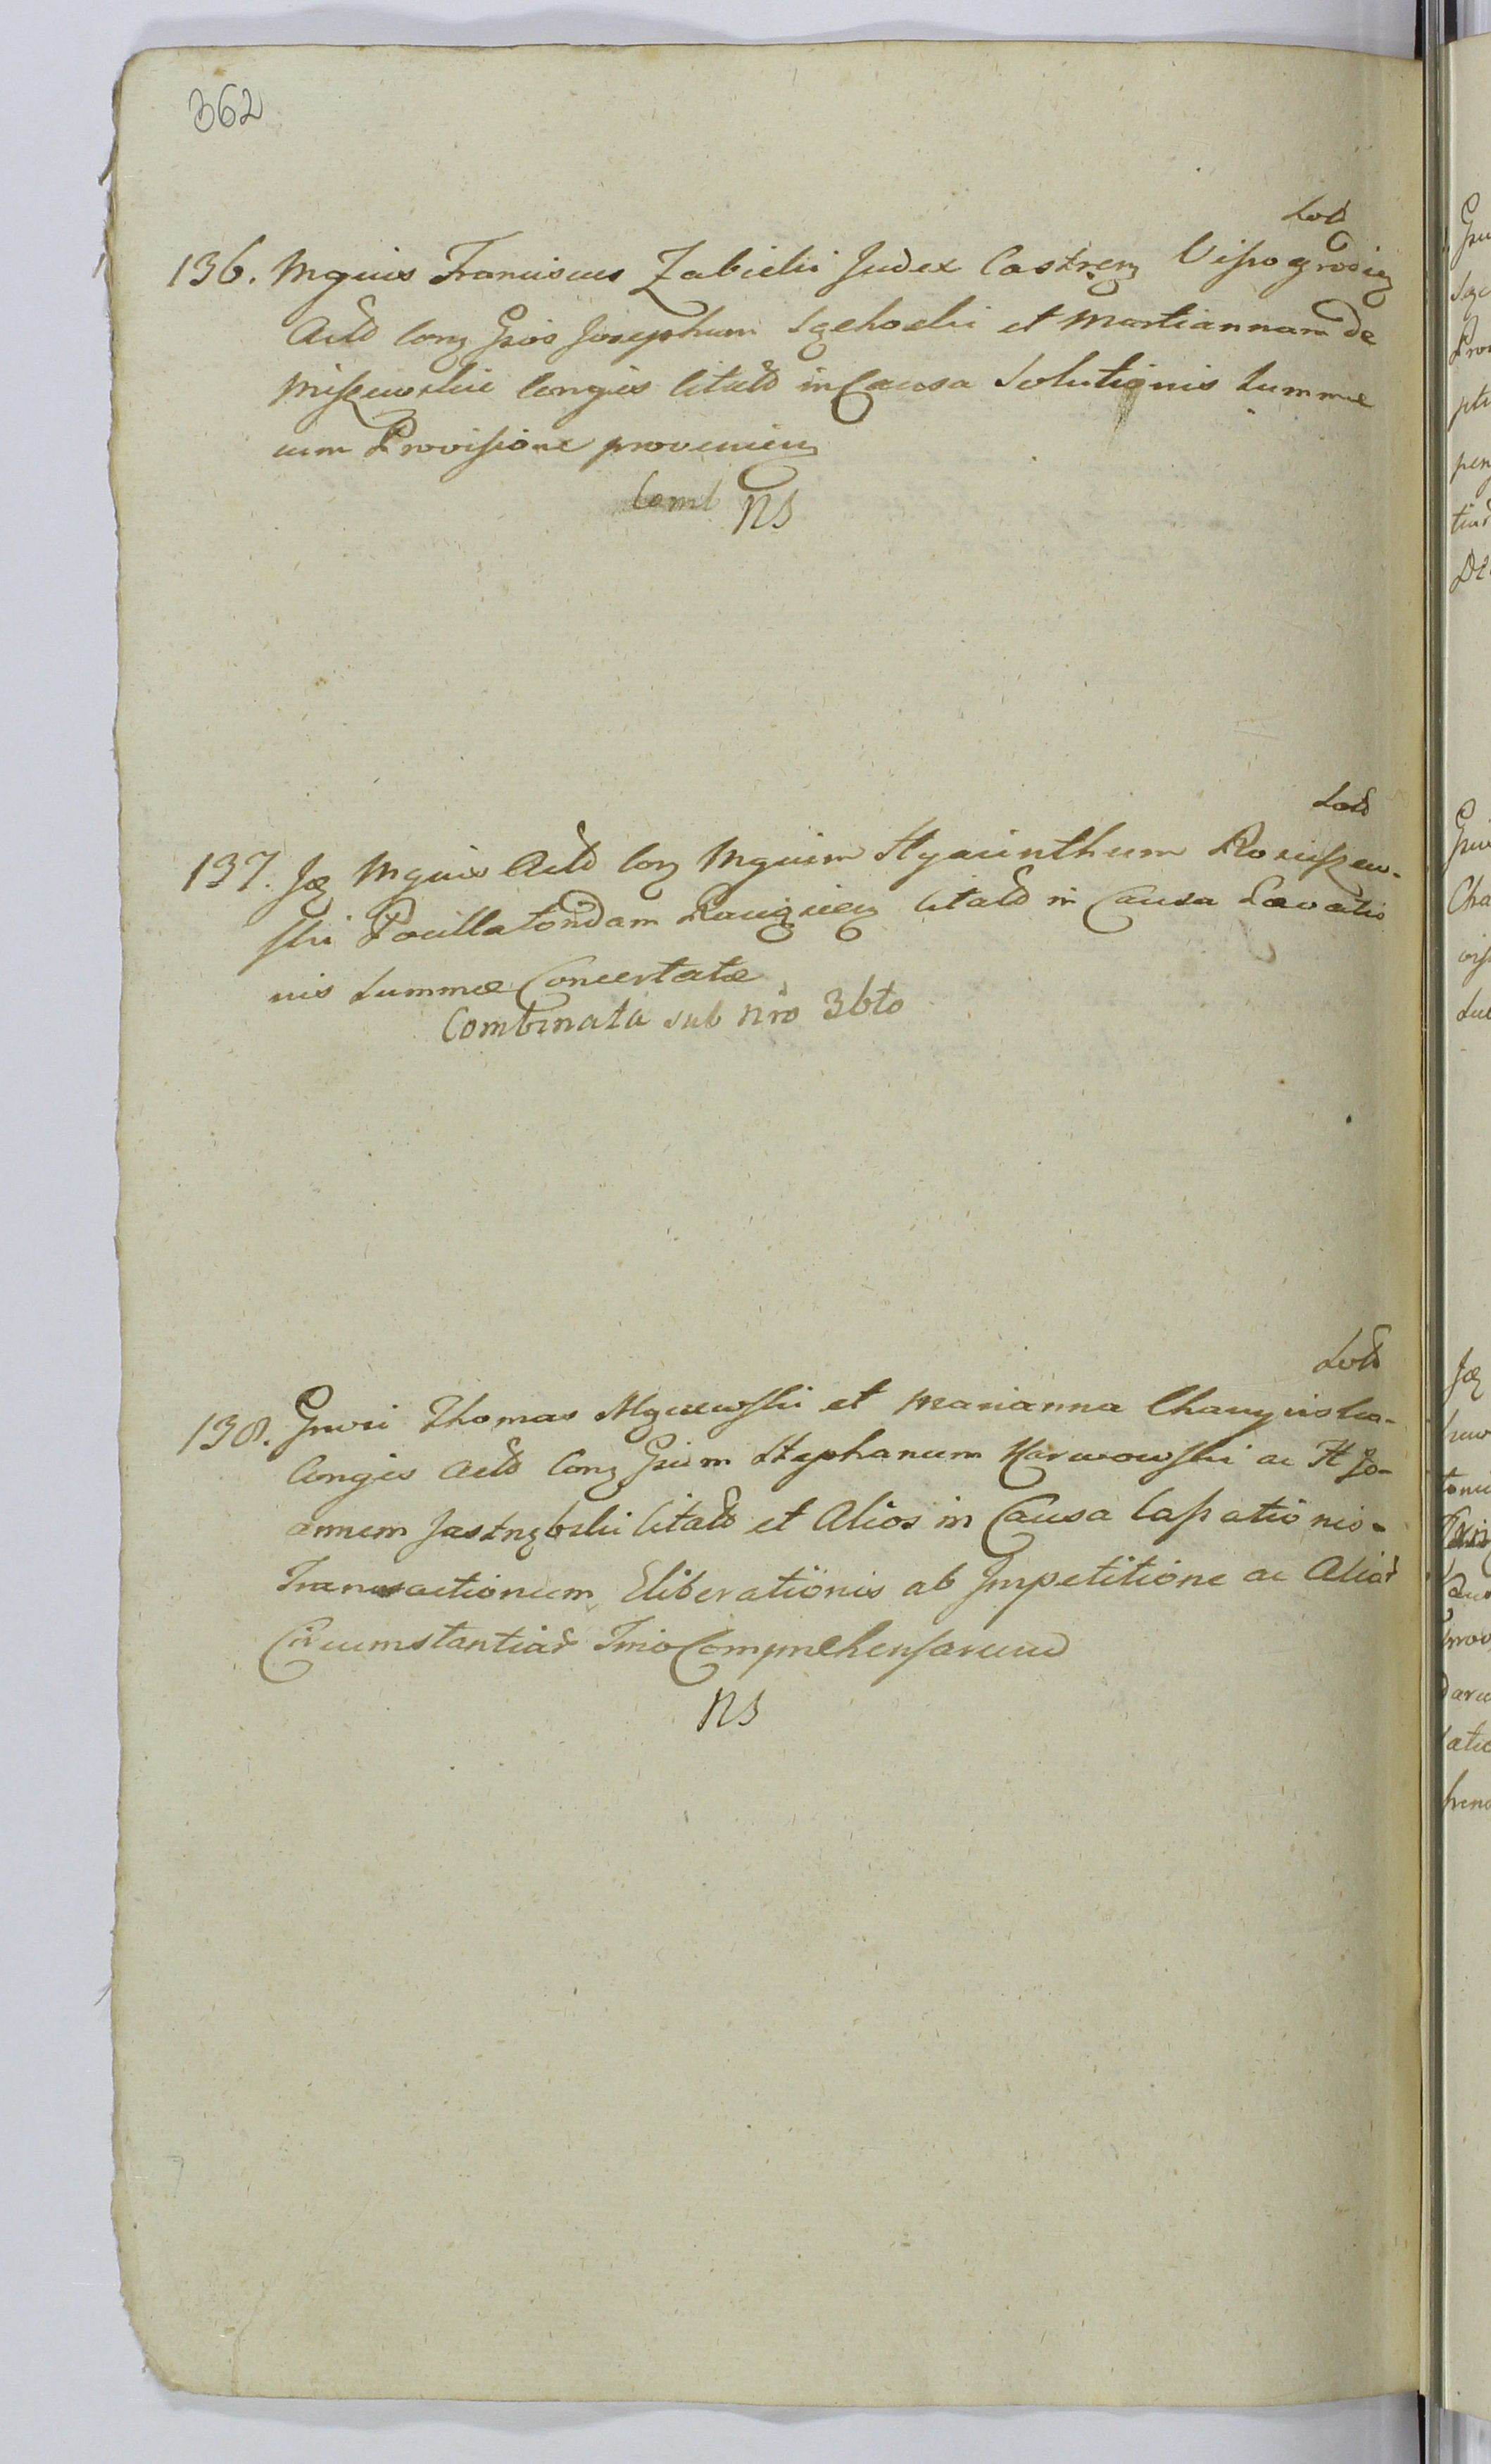 362
Lod
136. Mgcus Franciscus Zabielski Judex Castren Vissogrodien
Actd Con Gsos Josephum Szehoski et Martiannam de
Miszewskie Conges Citatd in Causa Solutionis Summæ
cum Provisione provenien
Comb NS
Lod
137. Jd Mgcus Actd Con Mgcum Hyacinthum Rosciszew-
ski Pocillatondam Raugnen Citatd in Causa Levatio
nis Summæ Concertatæ
Combinata sub Nro 36to
Lod
138. Gnosi Thomas et Marianna
Conges Actd Con Gsum Stephanum Karwowski ac H Jo-
annem Jastrzbski Citatd et Alios in Causa Cassationis
Transactionum Eliberationis ab Impetitione ac Aliar
Circumstantiar Tmio Comprehensarum
NS